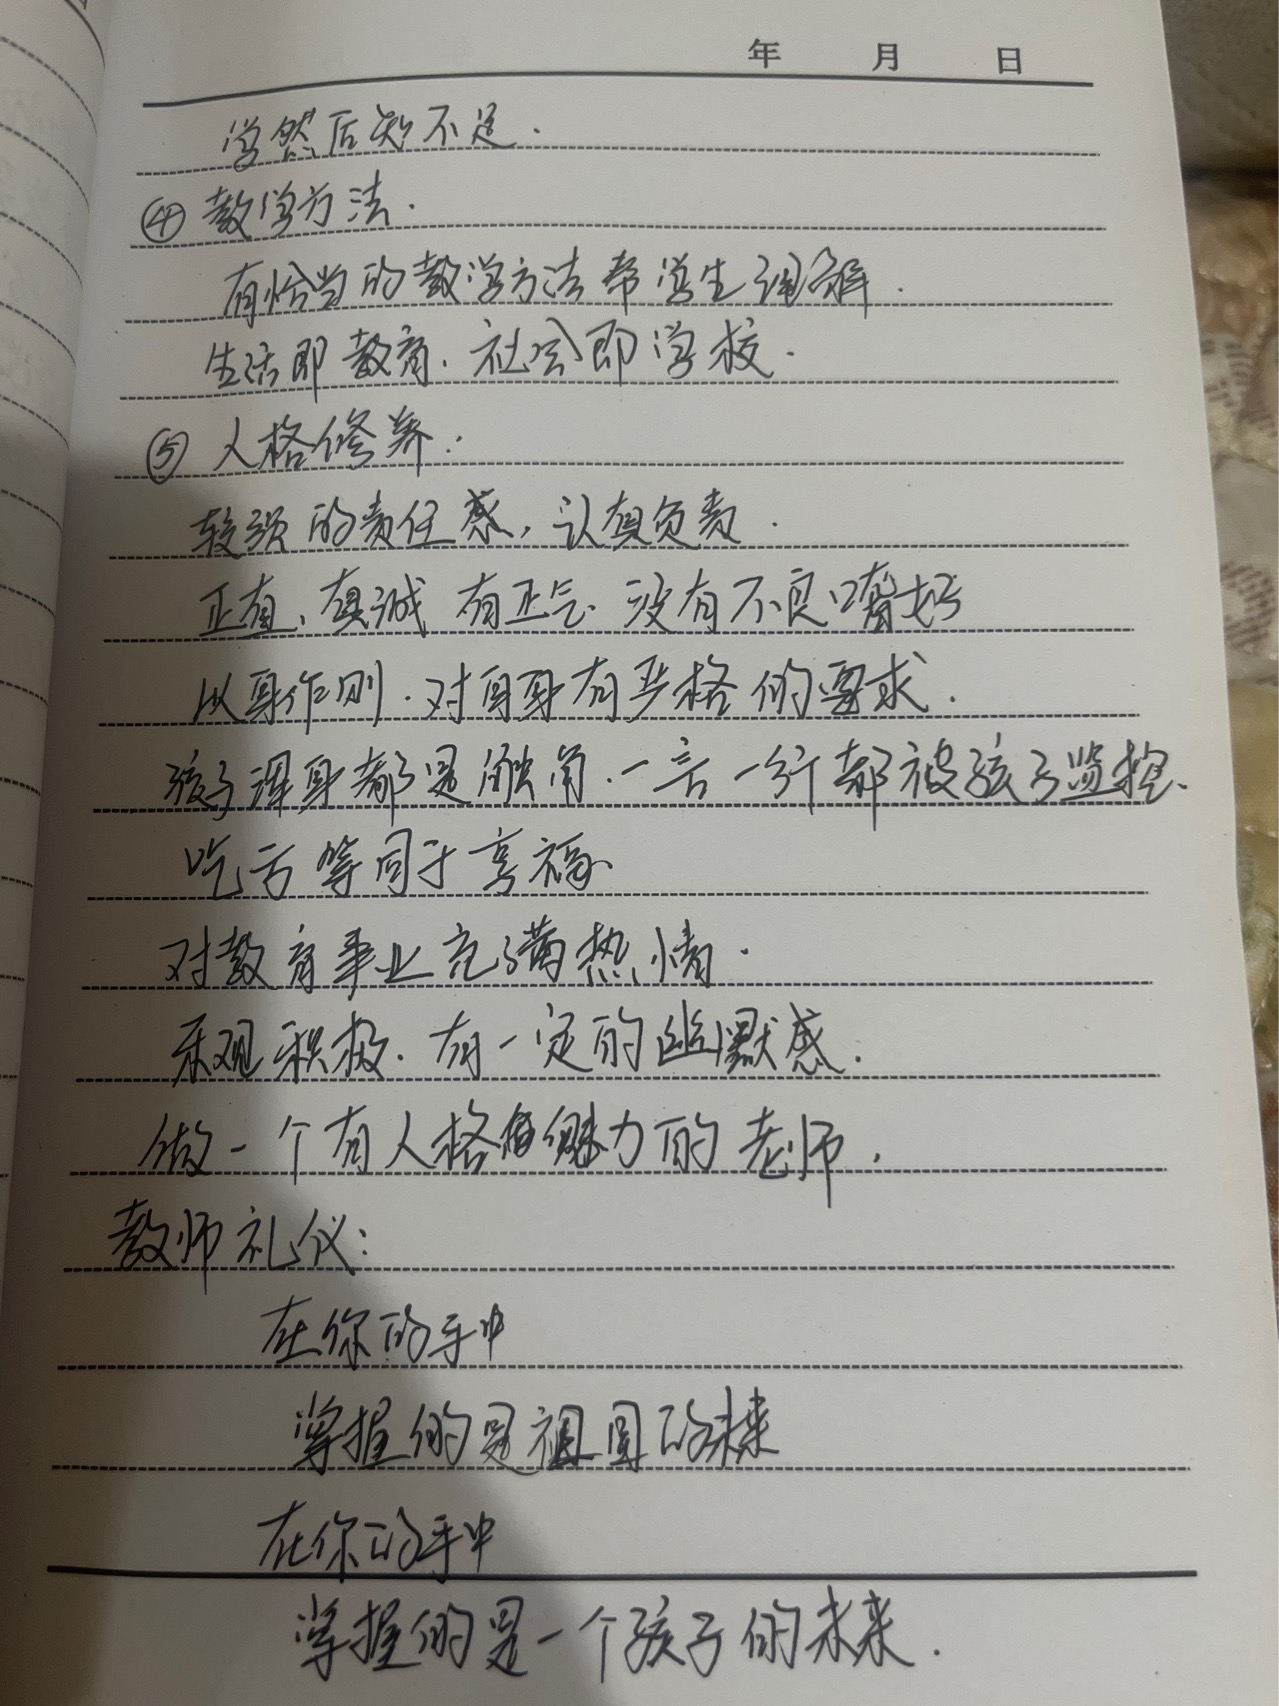 年 月 日
学然后知不足.
④ 教学方法.
有恰当的教学方法帮学生理解.
生活即教育.社会即学校.
⑤ 人格修养:
较强的责任感,认真负责.
正直、真诚 有正气.没有不良嗜好
以身作则.对自身有严格的要求.
孩子浑身都是触角.一言一行都被孩子监控.
吃亏等同于享福.
对教育事业充满热情.
乐观积极.有一定的幽默感.
做一个有人格魅力的老师.
教师礼仪:
在你的手中
掌握的是祖国的未来
在你的手中
掌握的是一个孩子的未来.